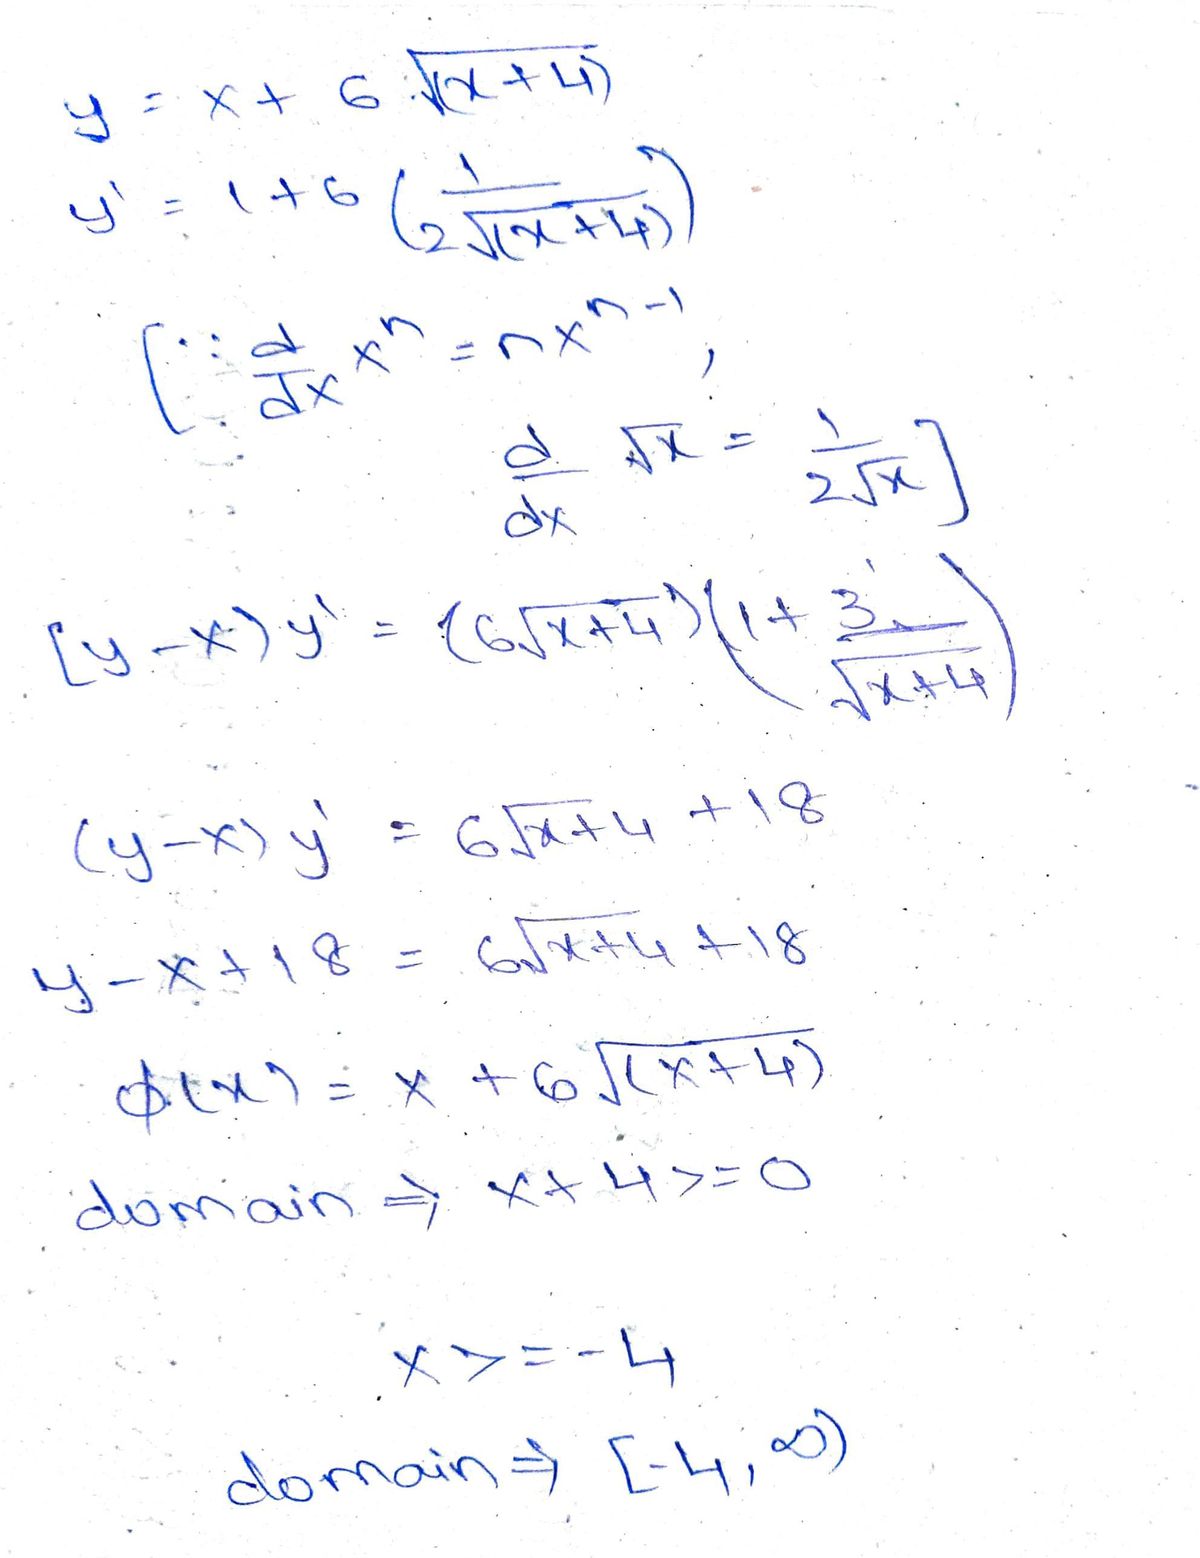 y = x + 6 √(x+4)
y' = 1 + 6 (1/2√(x+4))
[∵ d/dx xⁿ = nxⁿ⁻¹,
d/dx √x = 1/2√x]
[y - x) y' = (6√x+4) (1 + 3/√x+4)
(y-x) y' = 6√x+4 + 18
y - x + 18 = 6√x+4 + 18
ϕ(x) = x + 6√(x+4)
domain ⇒ x + 4 >= 0
x >= -4
domain ⇒ [-4, ∞)